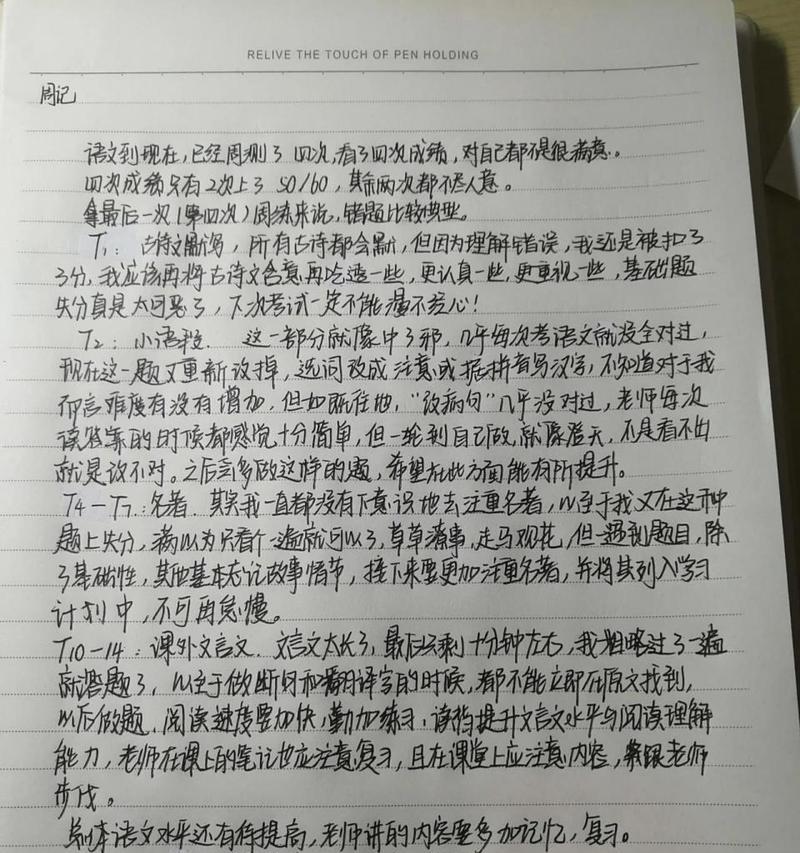 RELIVE THE TOUCH OF PEN HOLDING
周记
语文到现在，已经周测了四次，看了四次成绩，对自己都不是很满意。
四次成绩只有2次上了50/60，其余两次都不尽人意。
拿最后一次（第四次）周练来说，错题比较典型。
T1：古诗文默写，所有古诗都会默，但因为理解错误，我还是被扣了
3分，我应该再将古诗文含意再吃透一些，更认真一些，更重视一些，基础题
失分真是太可恶了，下次考试一定不能漫不经心！
T2：小语段．这一部分就像中了邪，几乎每次考语文就没全对过，
现在这一题又重新改掉，选词改成注意或据拼音写汉字，不知道对于我
而言难度有没有增加，但如既往地，“改病句”几乎没对过，老师每次
读答案的时候都感觉十分简单，但一轮到自己做，就像登天，不是看不出
就是改不对。之后会多做这样的题，希望在此方面能有所提升。
T4－T7：名著．其实我一直都没有下意识地去注重名著，以至于我又在这种
题上失分，满以为只看个一遍就可以了，草草済事，走马观花，但一遇到题目，除
了基础性，其他基本忘记故事情节，接下来要更加注重名著，并将其列入学习
计划中，不可再怠慢。
T10－14：课外文言文．文言文太长了，最后只剩十分钟左右，我粗略过了一遍
就答题了，以至于做断句和翻译字的时候，都不能立即在原文找到，
以后做题，阅读速度要加快，勤加练习，读提升文言文水平与阅读理解
能力，老师在课上的笔记也应注意复习，且在课堂上应注意内容，紧跟老师
步伐。
总体语文水平还有待提高，老师讲的内容要多加记忆，复习。